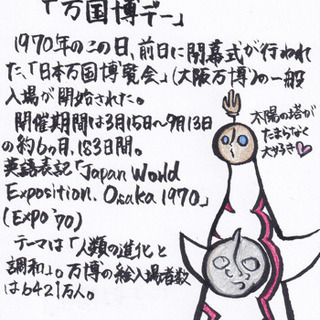 「万国博デー」
1970年のこの日、前日に開幕式が行われ
た、「日本万国博覧会」(大阪万博)の一般
入場が開始された。
開催期間は3月15日~9月13日
の約6カ月、183日間。
英語表記「Japan World
Exposition. Osaka 1970」
(Expo '70)
テーマは「人類の進化と
調和」。万博の総入場者数
は6421万人。
太陽の塔が
たまらなく
大好き♥